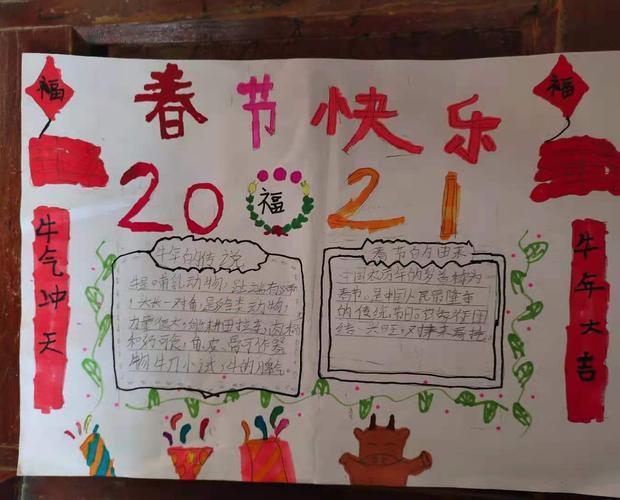 福
春节快乐
福
20
福
21
牛气冲天
牛年的传说
牛是哺乳动物,
头长一对角,是 类动物,
力量很大,能耕田拉车,肉
和奶可食,角 皮 骨可作
物 牛刀小试,牛的脾气
春节的由来
中国农历年的岁首称为
春节,是中国人民最隆重
的传统节日,也象征团
结、兴旺,对未来
牛年大吉